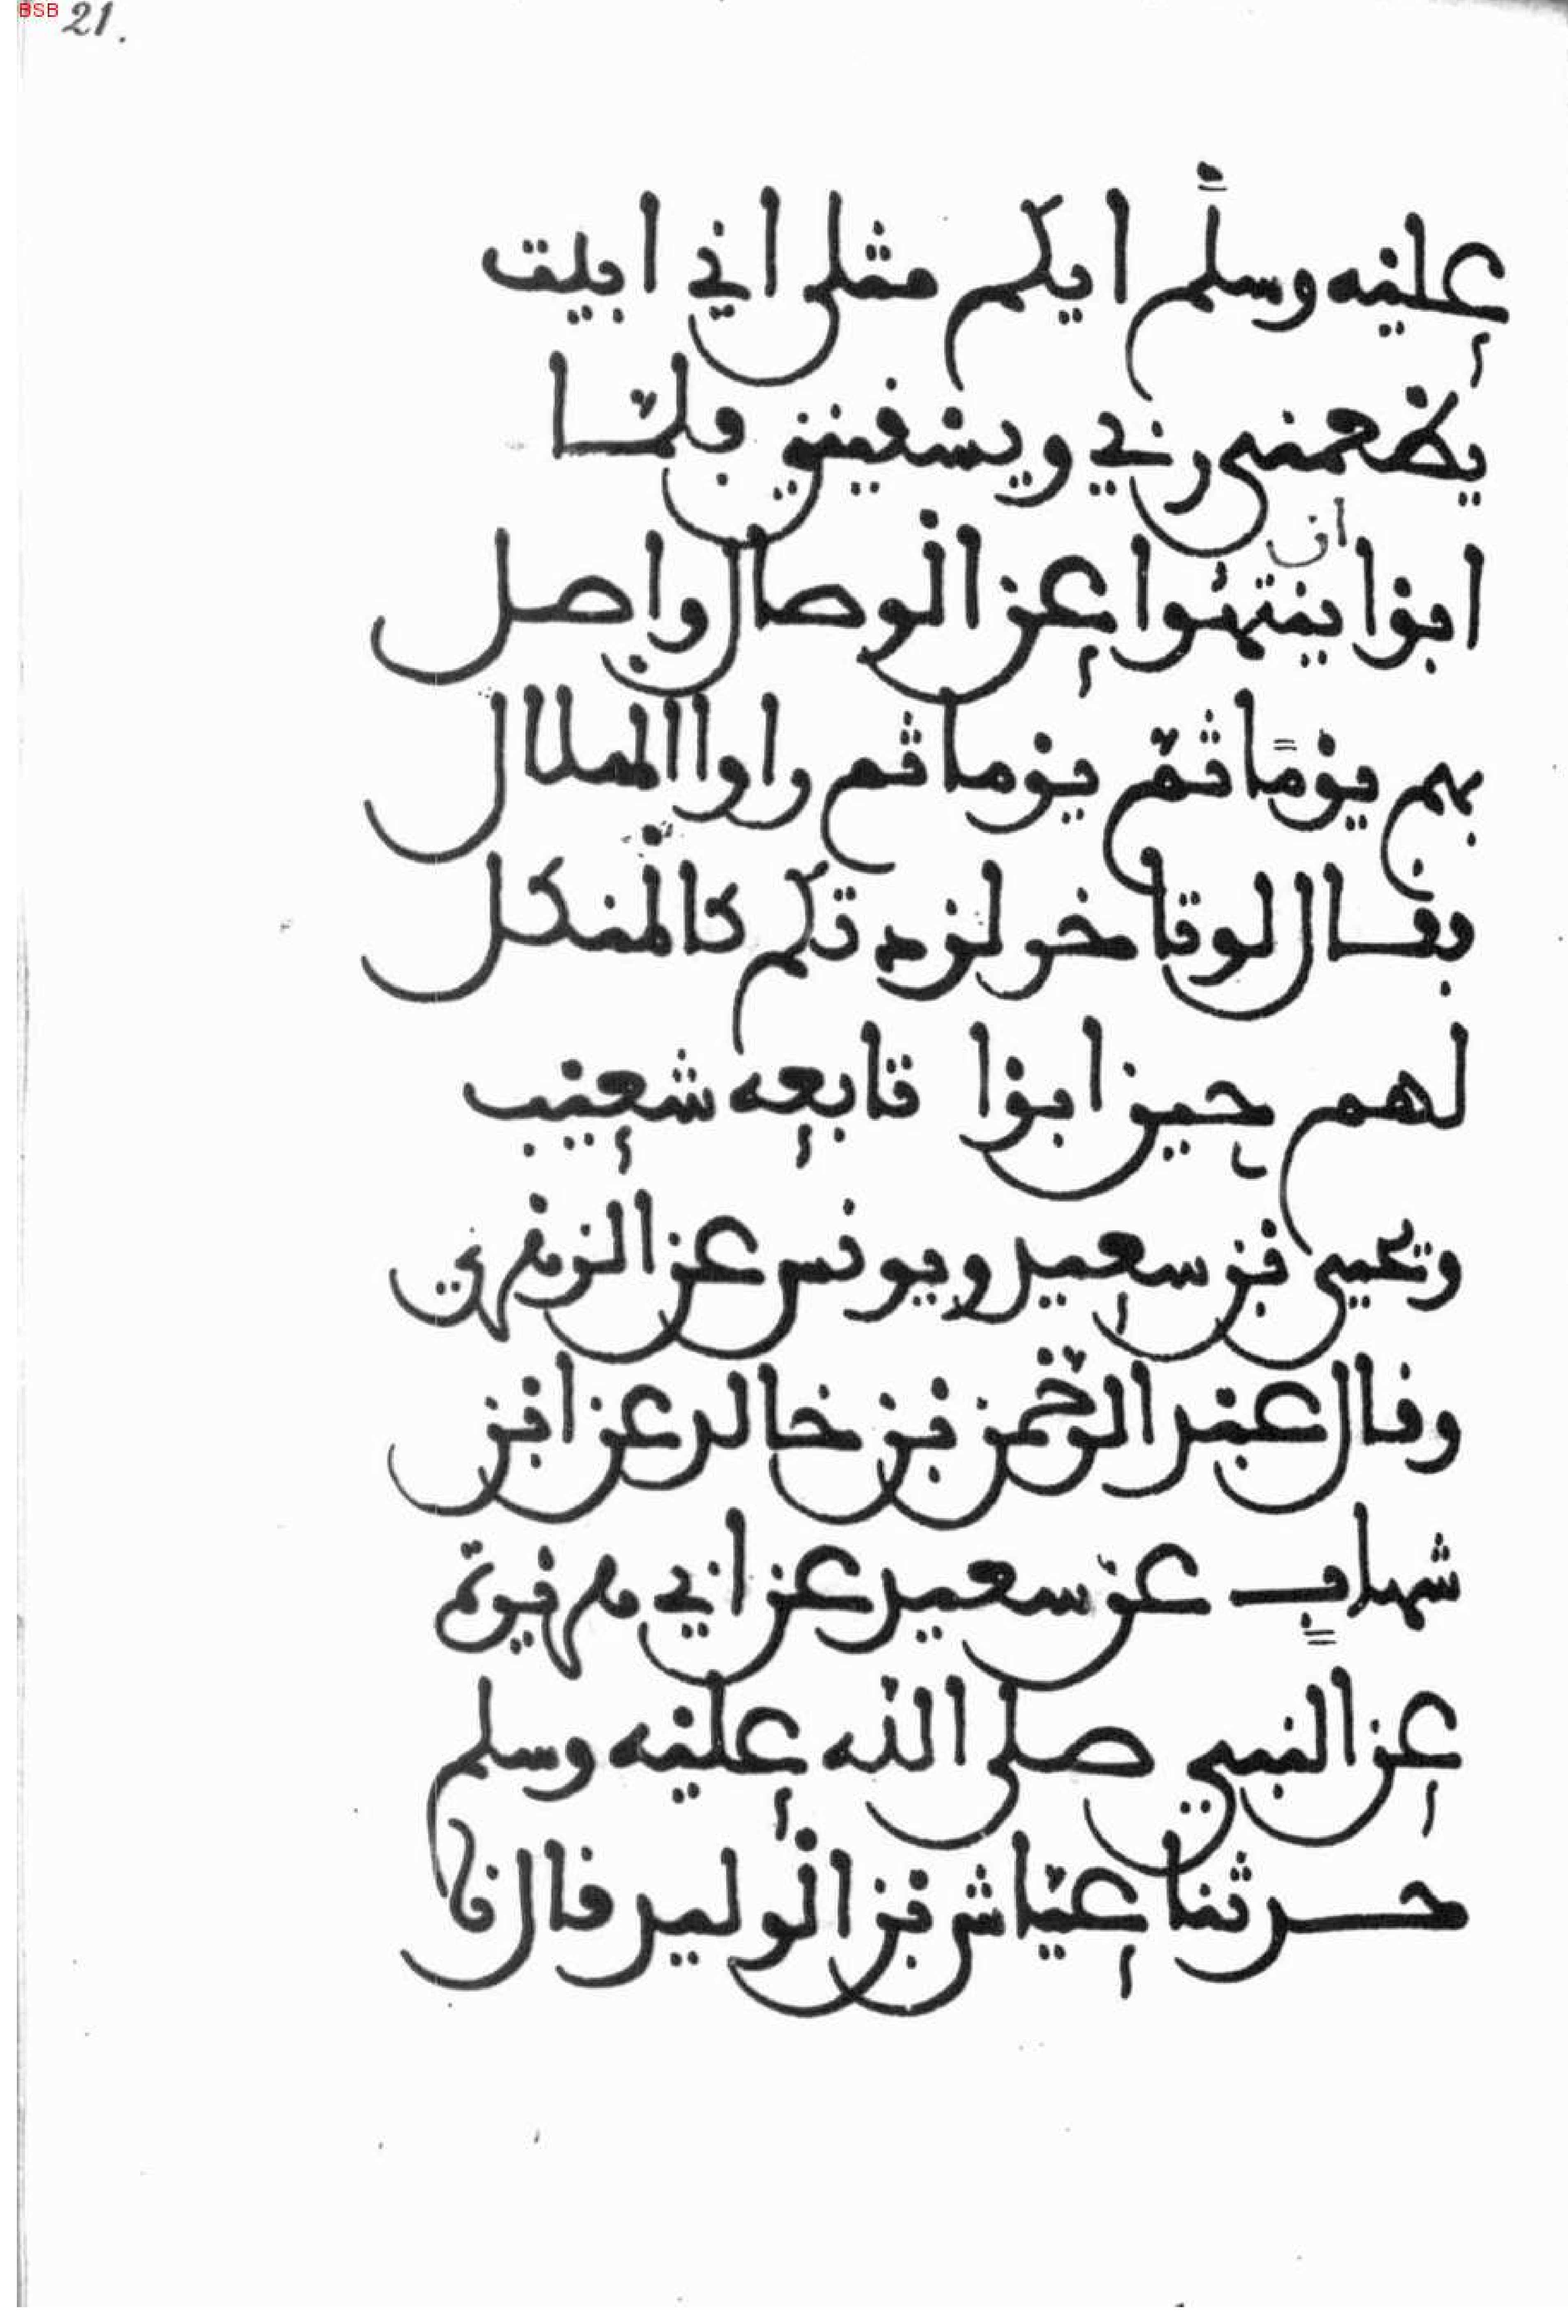 BSB 21.
عليه وسلم ايكم مثلي اني ابيت
يطعمني ربي ويسقيني فلما
ابوا ان ينتهوا عن الوصال واصل
بهم يوما ثم يوما ثم راوا الهلال
فقال لو تاخر لزدتكم كالمنكل
لهم حين ابوا تابعه شعيب
ويحيى بن سعيد ويونس عن الزهري
وقال عبد الرحمن بن خالد عن ابن
شهاب عن سعيد عن ابي هريرة
عن النبي صلى الله عليه وسلم
حدثنا عياش بن الوليد قال نا